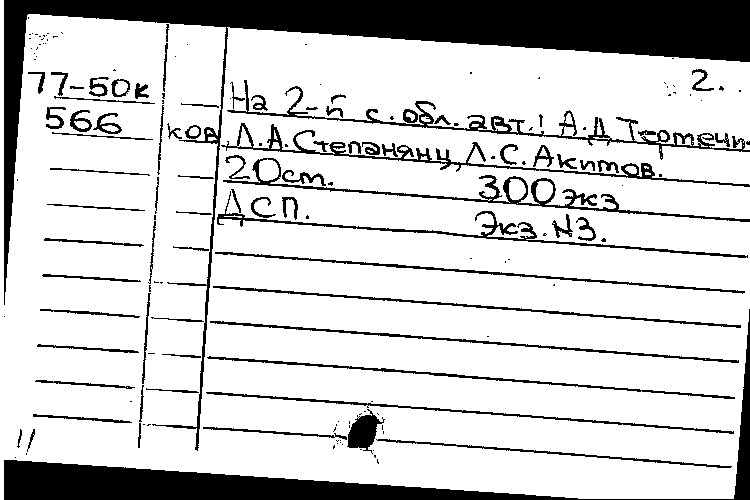 2.
77-50к На 2-й с. обл. авт.: А.Д. Тертечни-
566 ков, Л.А. Степанянц, Л.С. Акимов.
20 ст. 300 экз
ДСП. Экз. N3.